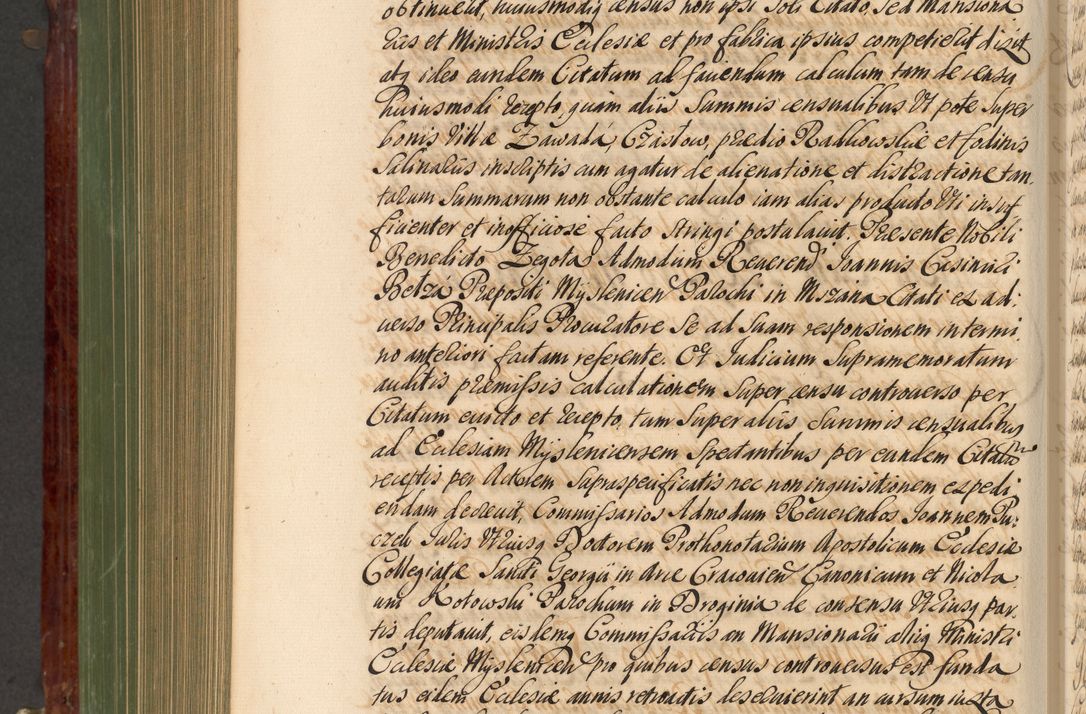 obtinuerit, huiusmodi census non ipsi soli Citato, sed Mansiona
riis et Ministris Ecclesiæ et pro fabrica ipsius competierit dixit
atq ideo eundem Citatum ad faciendum calculum tam de censu
huiusmodi recepto, quàm aliis Summis censualibus Vt pote super
bonis Villæ Zawada, Czasłow, prædio Radkowskie et fodinis
Salinariis inscriptis cum agatur de alienatione et distractione tan-
tarum Summarum non obstante calculo iam alias producto Vti insuf
ficienter et inofficiose facto stringi postulauit. Præsente Nobili
Benedicto Zegota Admodum Reuerendi Joannis Casimiri
Betza Præpositi Myslenicen Parochi in Mszana Citati ex ad-
uerso Principalis Procuratore se ad suam responsionem in termi
no anteriori factam referente. Et Judicium Supramemoratum
auditis præmissis calculationem super censu controuerso per
Citatum euicto et recepto, tum super aliis Summis censualibus
ad Ecclesiam Myslenicensem spectantibus per eundem Citatum
receptis per Actorem supraspecificatis nec non inquisitionem expedi
endam decreuit, Commissarios Admodum Reuerendos Joannem Pu-
czek Juris Vtriusq Doctorem Prothonotarium Apostolicum Ecclesiæ
Collegiatæ Sancti Georgii in Arce Cracouien Canonicum et Nicola
um Kotowski Parochum in Droginia de consensu Vtriusq par
tis deputauit, eisdemq Commissariis an Mansionarii aliiq Ministri
Ecclesiæ Myslenicen pro quibus census controuersus est funda
tus eidem Ecclesiæ annis retroactis deseruierint an cursum iuxta